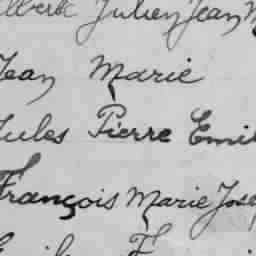 Albert Julien Jean
Jean Marie
Jules Pierre Emil
François Marie Jose